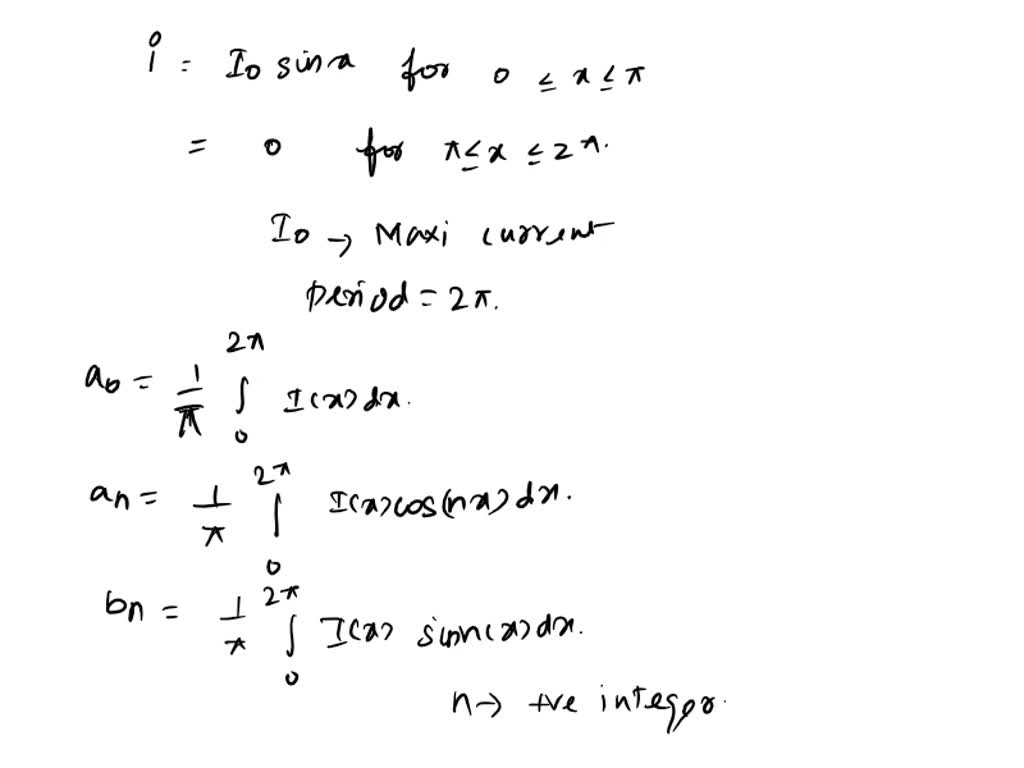 i = I₀ sinx for 0 ≤ x ≤ π
= 0 for π ≤ x ≤ 2π.
I₀ → Maxi current
period = 2π.
a₀ = 1/π ∫₀^2π I(x) dx.
aₙ = 1/π ∫₀^2π I(x) cos(nx) dx.
bₙ = 1/π ∫₀^2π I(x) sinn(x) dx.
n → +ve integer.